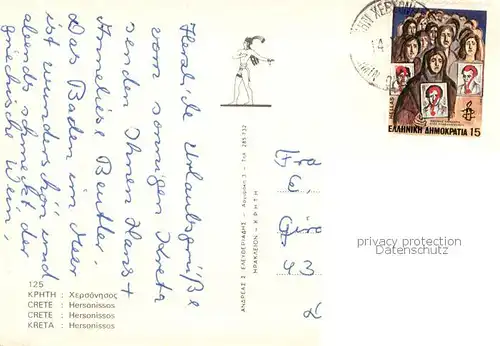 Herzliche Urlaubsgrüße
vom sonnigen Kreta
senden Ihnen Hans +
Anneliese Beutler.
Das Baden im Meer
ist wunderschön und
abends schmeckt der
griechische Wein.
125
ΚΡΗΤΗ : Χερσόνησος
CRETE : Hersonissos
CRETE : Hersonissos
KRETA : Hersonissos
ΑΝΔΡΕΑΣ Σ. ΕΛΕΥΘΕΡΙΑΔΗΣ
ΗΡΑΚΛΕΙΟΝ - ΚΡΗΤΗ
ΕΛΛΗΝΙΚΗ ΔΗΜΟΚΡΑΤΙΑ 15
HELLAS
Fra
6,
43
privacy protection
Datenschutz